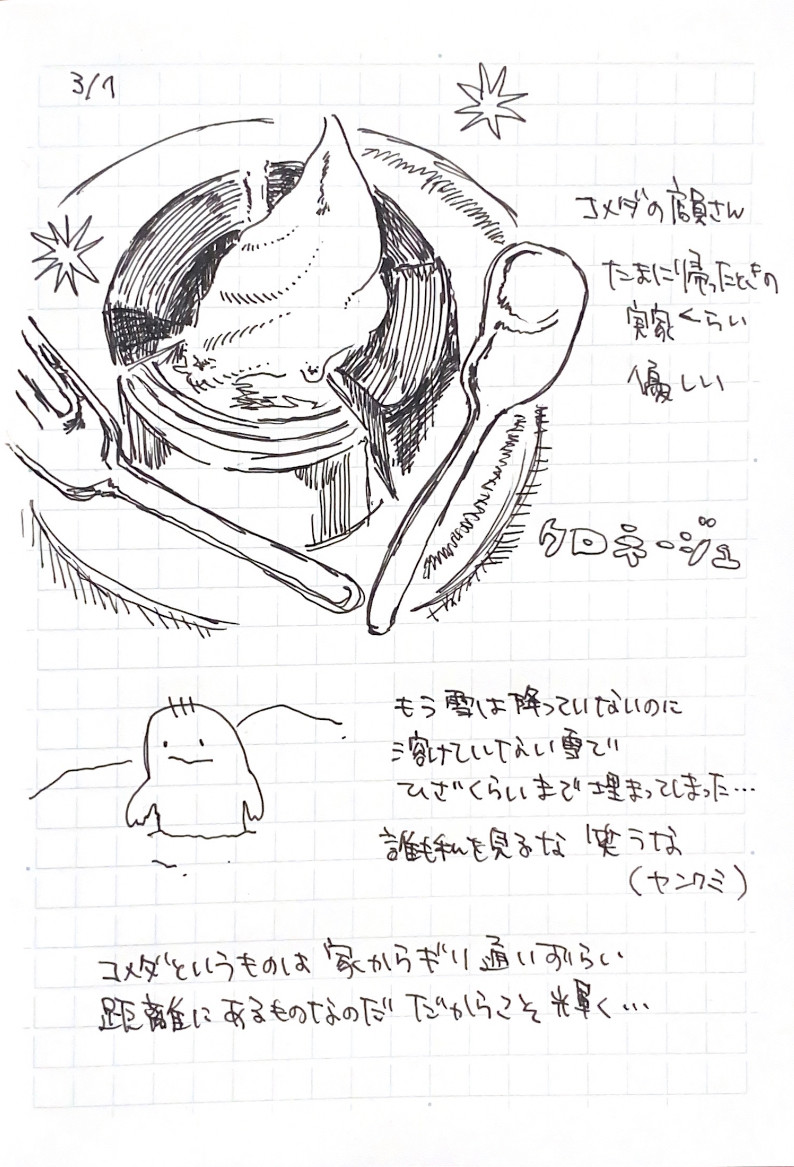 3/1
コメダの店員さん
たまに帰ったときの
実家くらい
優しい
クロネージュ
もう雪は降っていないのに
溶けていない雪で
ひざくらいまで埋まってしまった…
誰も私を見るな 笑うな
(ヤンクミ)
コメダというものは 家からギリ通いづらい
距離にあるものなのだ だからこそ輝く…